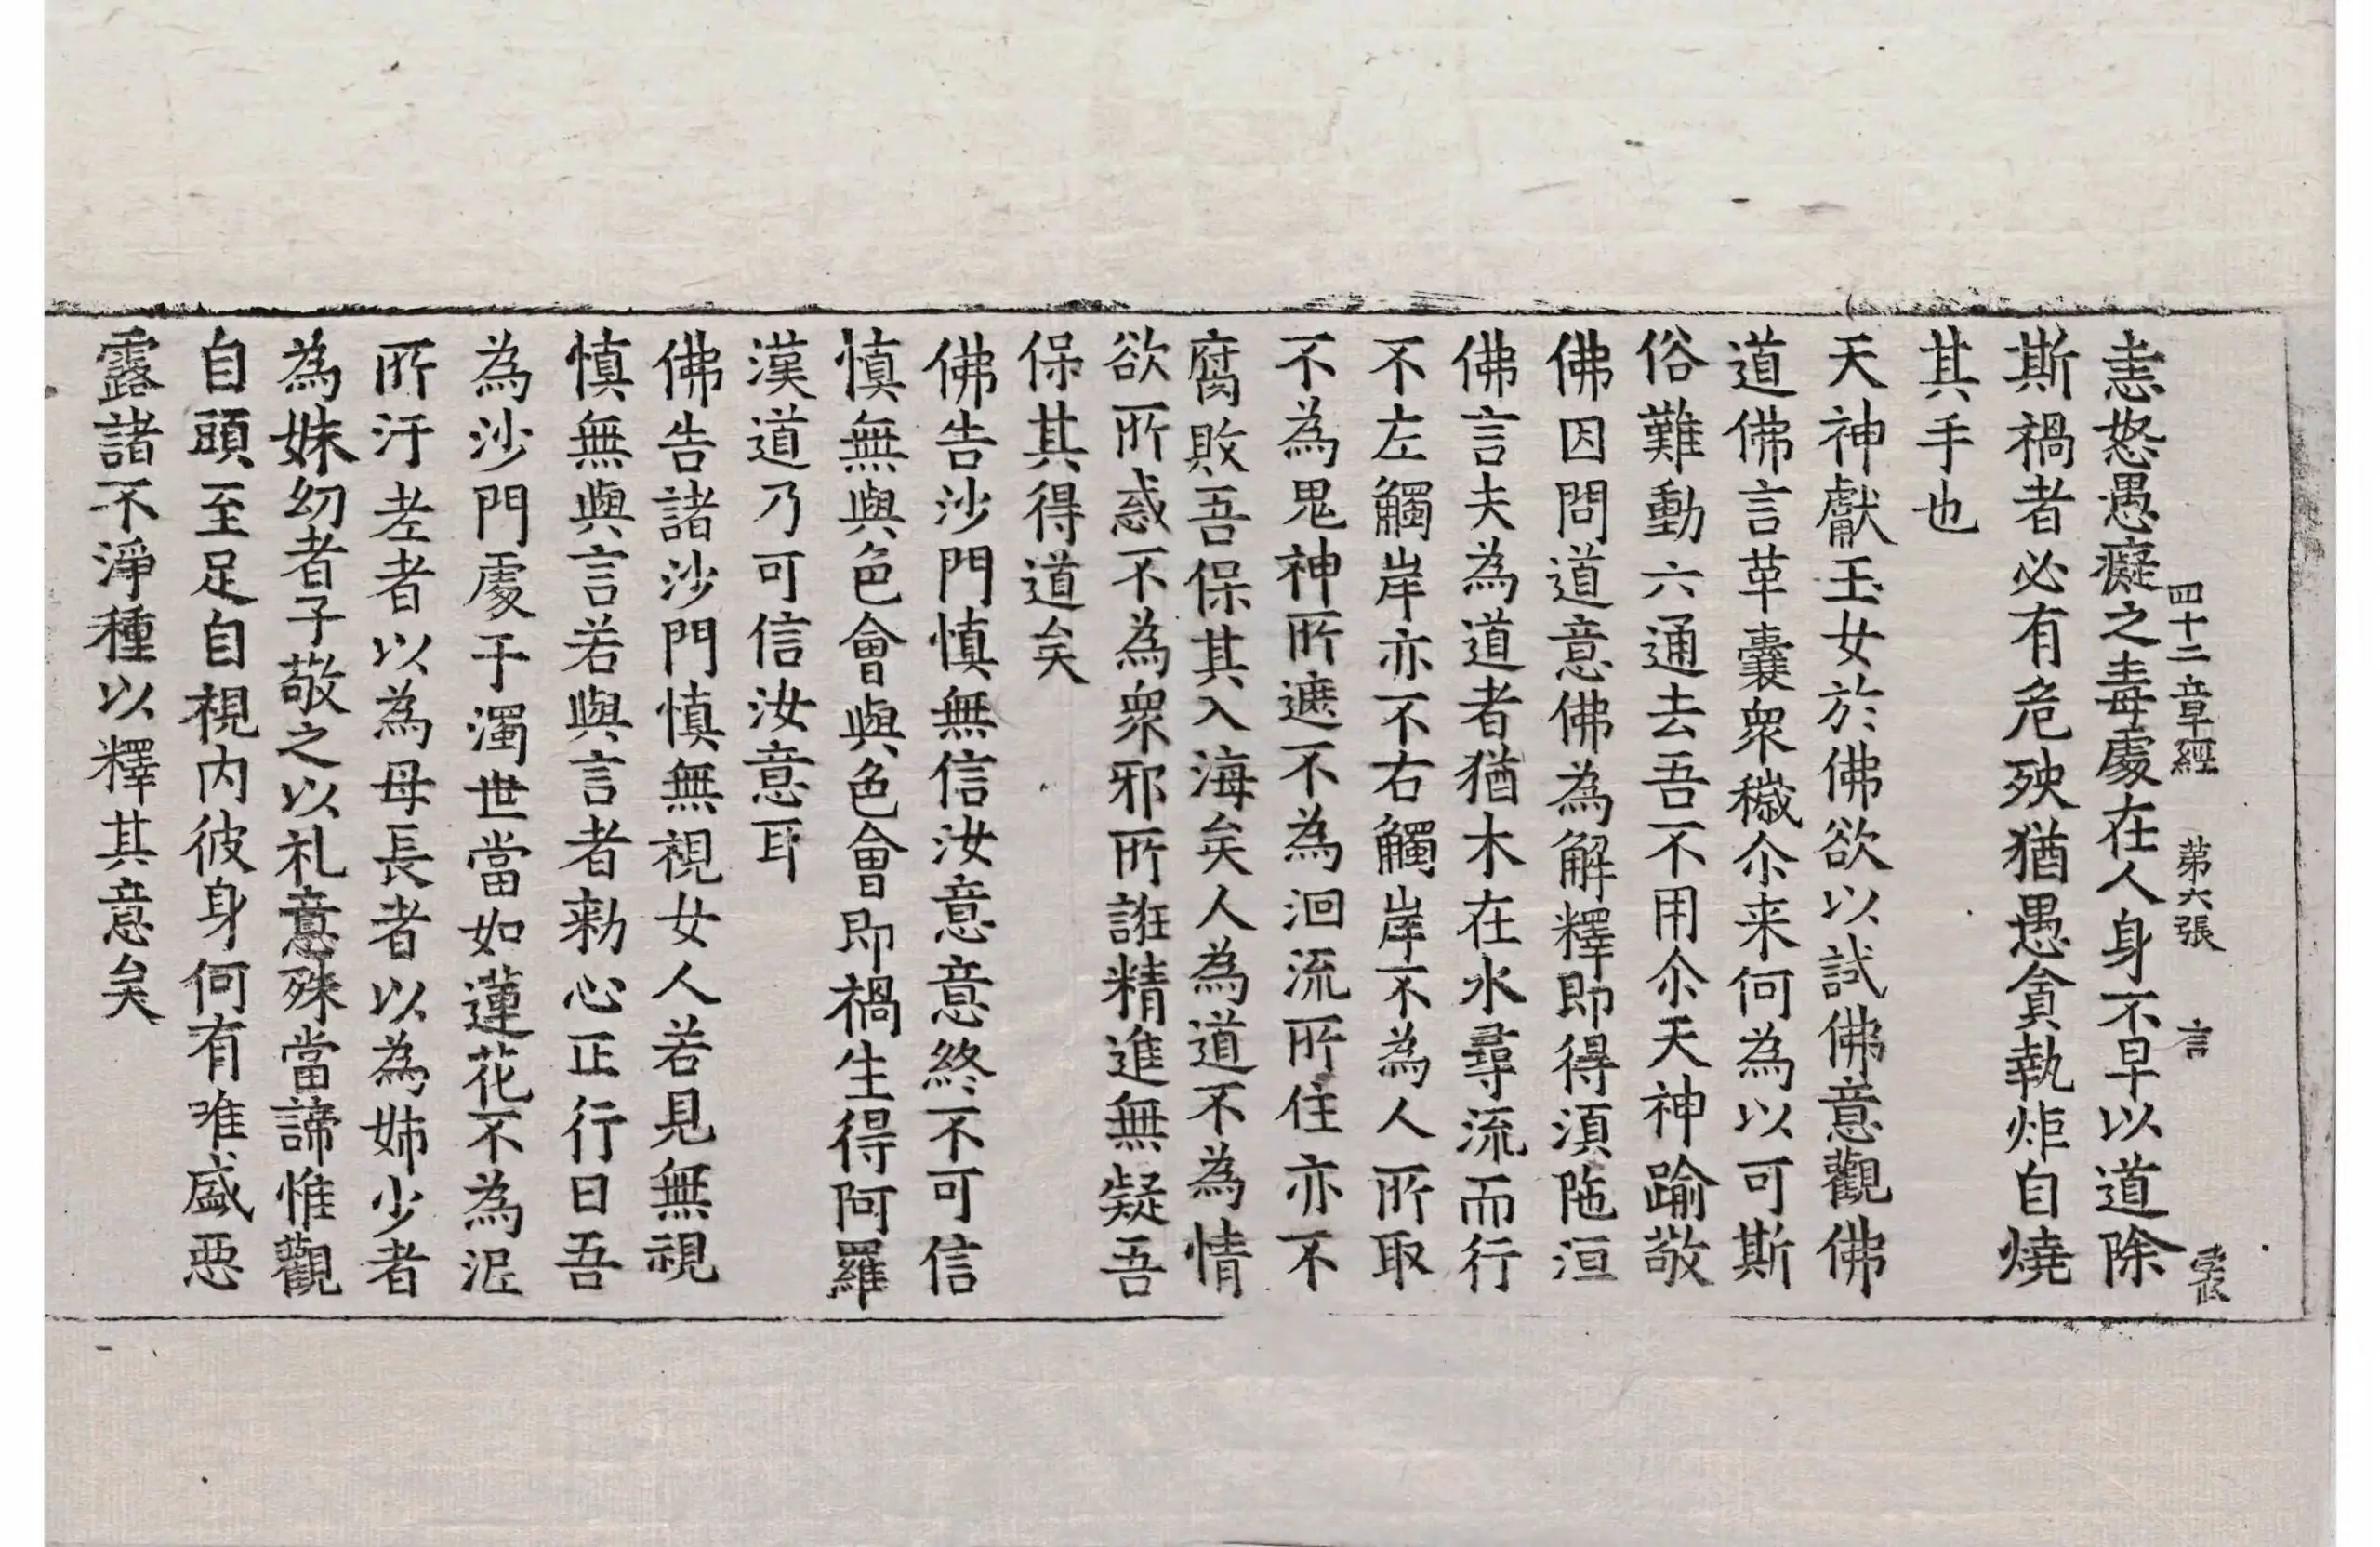 恚怒愚癡之毒處在人身不早以道除
四十二章經 第六張 言
斯禍者必有危殃猶愚貪執炬自燒
其手也
天神獻玉女於佛欲以試佛意觀佛
道佛言革囊衆穢尒来何為以可斯
俗難動六通去吾不用尒天神踰敬
佛因問道意佛為解釋即得湏陁洹
佛言夫為道者猶木在水尋流而行
不左觸岸亦不右觸岸不為人所取
不為鬼神所遮不為洄流所住亦不
腐敗吾保其入海矣人為道不為情
欲所惑不為衆邪所誑精進無疑吾
保其得道矣
佛告沙門慎無信汝意意終不可信
慎無與色會與色會即禍生得阿羅
漢道乃可信汝意耳
佛告諸沙門慎無視女人若見無視
慎無與言若與言者勑心正行曰吾
為沙門處于濁世當如蓮花不為泥
所汙老者以為母長者以為姉少者
為妹幼者子敬之以礼意殊當諦惟觀
自頭至足自視内彼身何有唯盛惡
露諸不淨種以釋其意矣